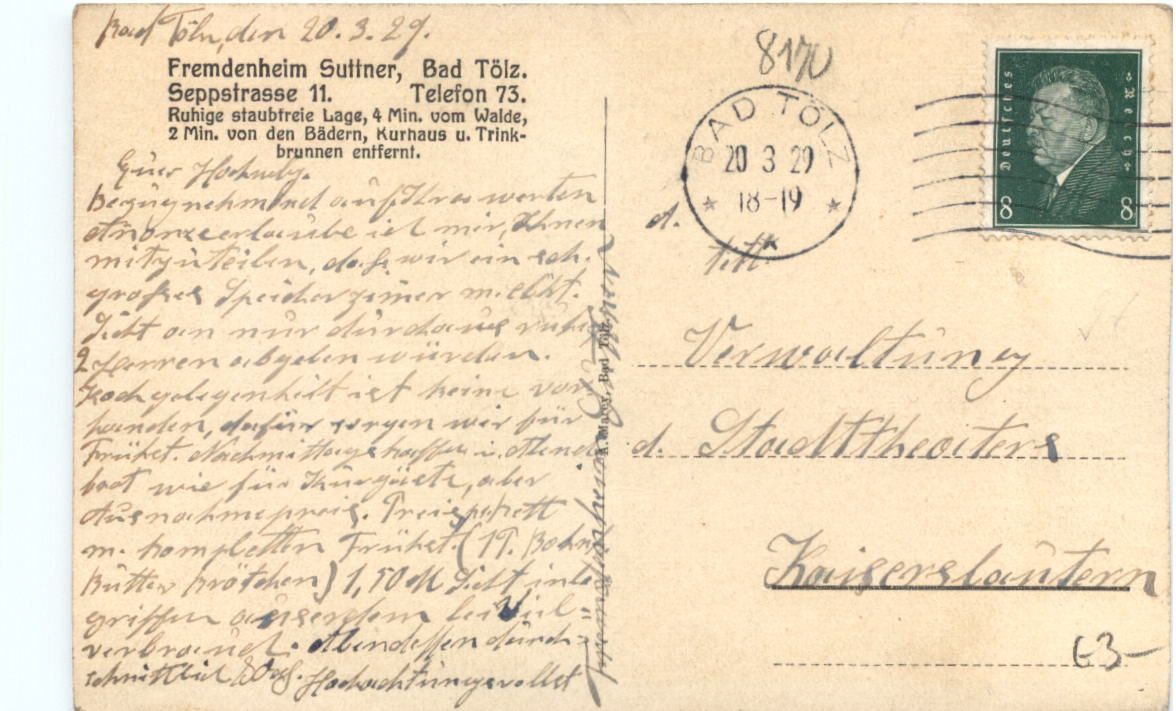 Bad Tölz, den 20.3.29.
Fremdenheim Suttner, Bad Tölz.
Seppstrasse 11. Telefon 73.
Ruhige staubfreie Lage, 4 Min. vom Walde,
2 Min. von den Bädern, Kurhaus u. Trink-
brunnen entfernt.
Euer Hochwohlg.
Bezugnehmend auf Ihre werten
Annonze erlaube ich mir, Ihnen
mitzuteilen, daß wir ein sch.
großes Speicherzimer m. elekt.
Licht an nur durchaus ruhig
2 Herren abgeben würden.
Kochgelegenheit ist keine vor
handen, dafür sorgen wir für
Frühst. Nachmittagskaffee u. Abend
brot wie für Kurgäste, aber
Ausnahmepreis. Preis pr. Bett
m. kompletten Frühst. (1 T. Bohn
Butter Brötchen) 1,50 M Licht inbe
griffen ausserdem bei Viel-
verbrauch. Abendessen durch-
schnittlich 80 Pf. Hochachtungsvollst
Fremdenheim Suttner
A. Marex, Bad Tölz
8170
BAD TÖLZ
20 3 29
18-19
Deutsches Reich
8 8
d.
titl.
Verwaltung
d. Stadttheaters
Kaiserslautern
€3-